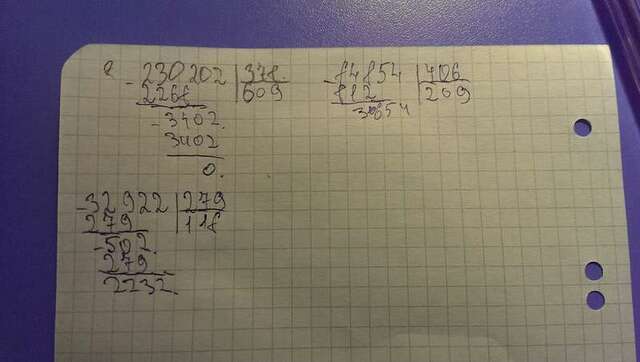 2 - 230202 | 378
2268 | 609
- 3402
3402
0.
- 84854 | 406
812 | 209
3654
- 32922 | 279
279 | 118
- 502
279
2232